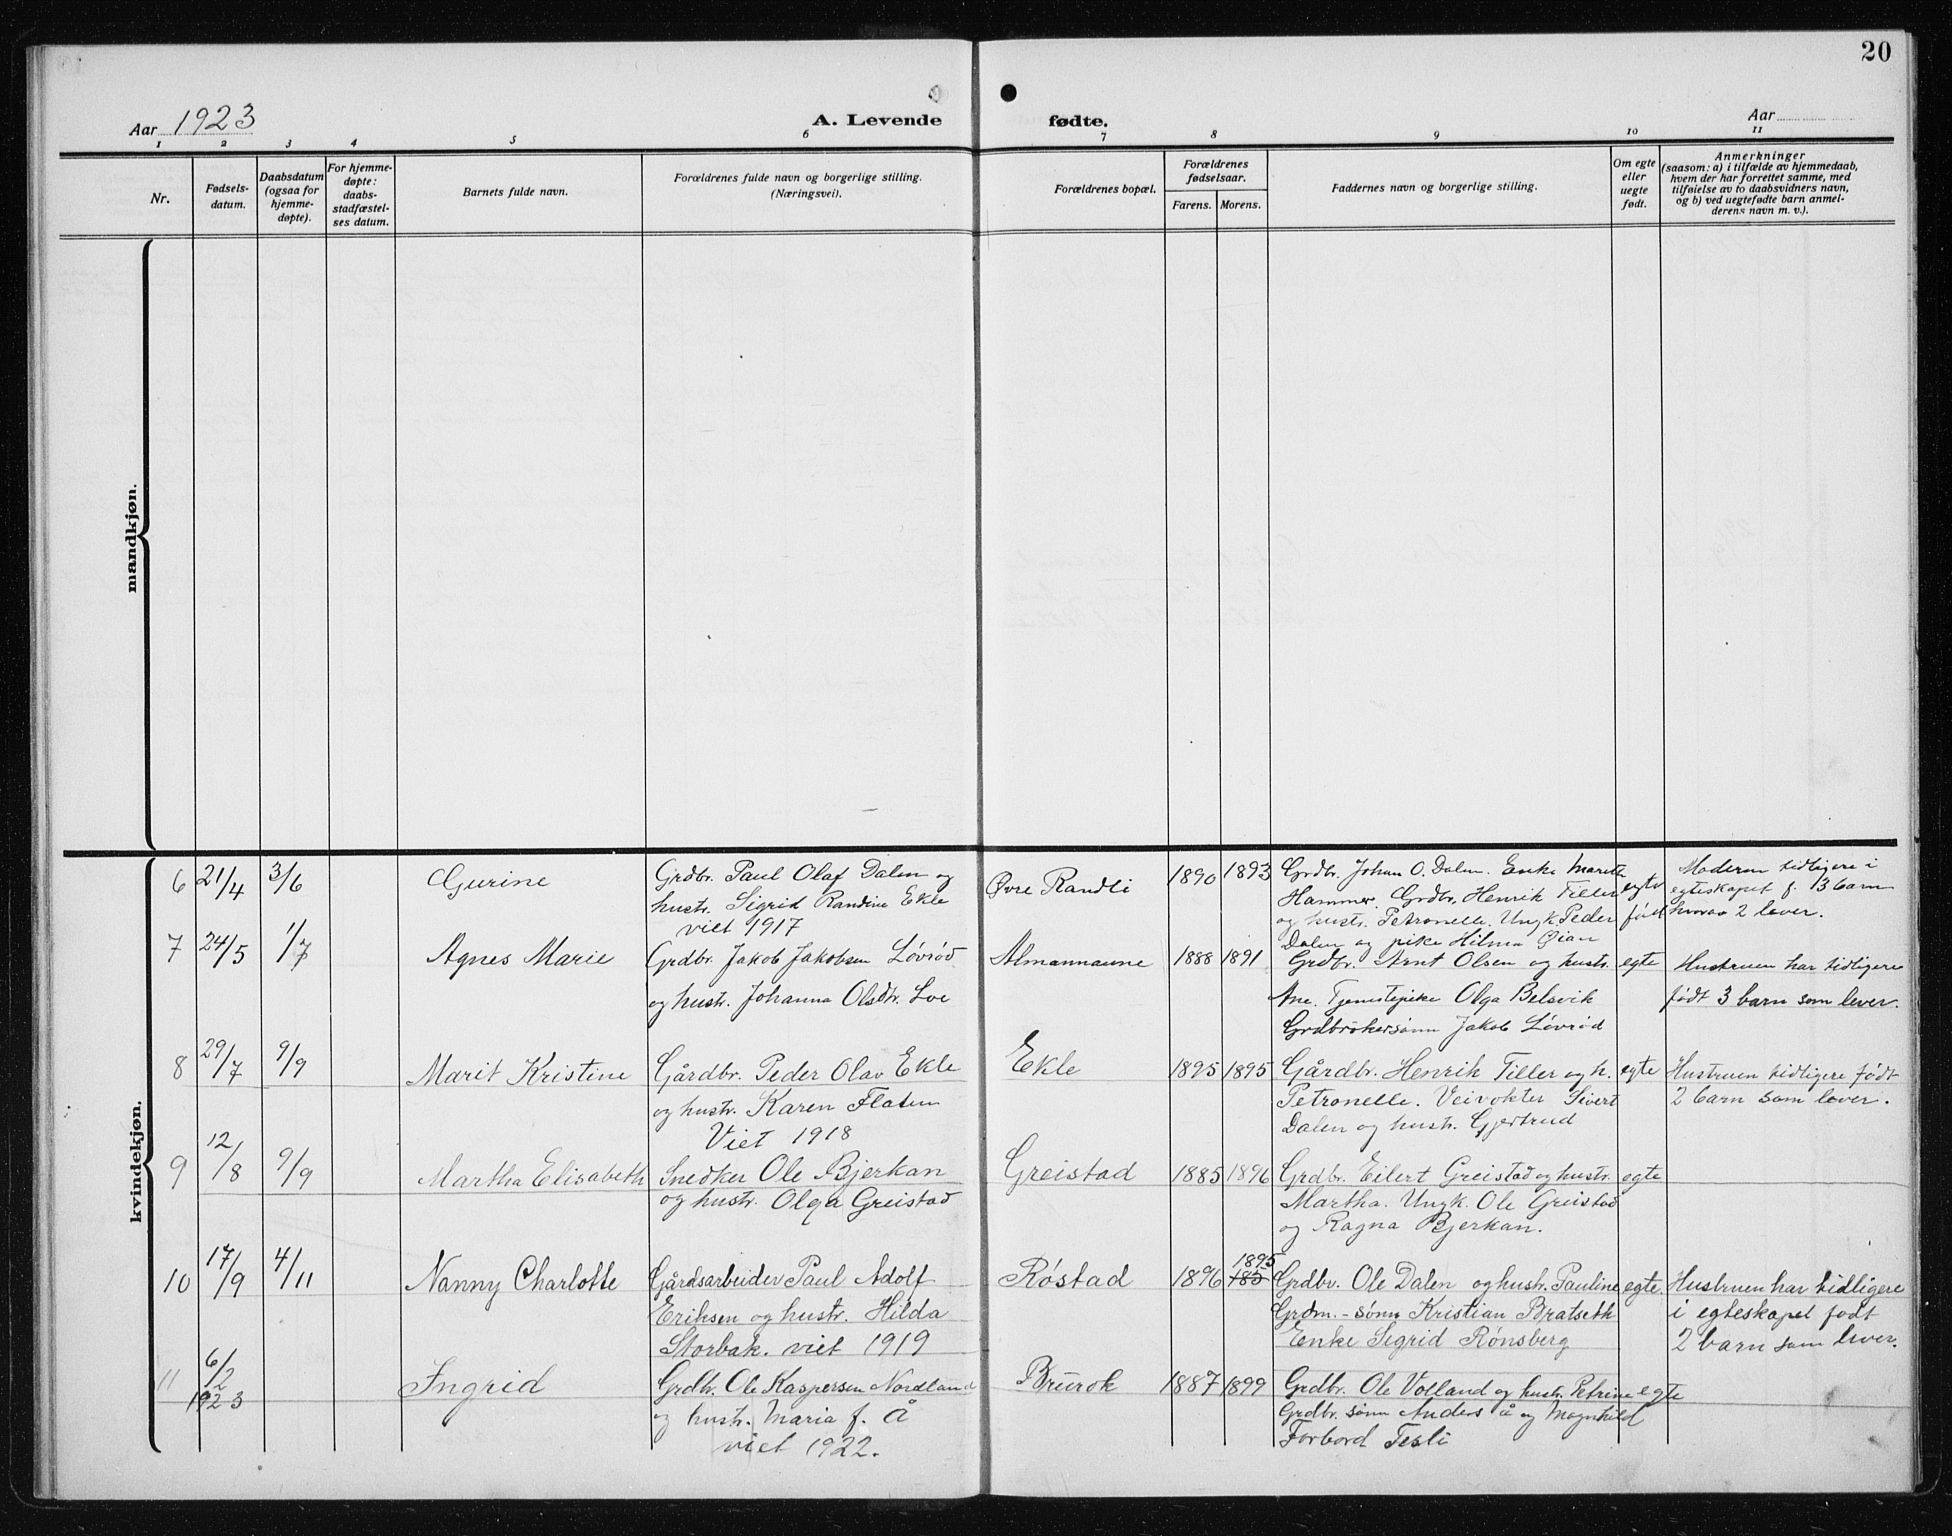 20
Aar 1923
A. Levende fødte.
Aar
1 2 3 4 5 6 7 8 9 10 11
Nr.
Fødsels-
datum.
Daabsdatum
(ogsaa for
hjemme-
døpte).
For hjemme-
døpte:
daabs-
stadfæstel-
ses datum.
Barnets fulde navn.
Forældrenes fulde navn og borgerlige stilling.
(Næringsvei).
Forældrenes bopæl.
Forældrenes
fødselsaar.
Farens. Morens.
Faddernes navn og borgerlige stilling.
Om egte
eller
uegte
født.
Anmerkninger
(saasom: a) i tilfælde av hjemmedaab,
hvem der har forrettet samme, med
tilføielse av to daabsvidners navn,
og b) ved uegtefødte barn anmel-
derens navn m. v.).
mandkjøn.
kvindekjøn.
6 21/4 3/6 Gurine
Grdbr. Paul Olaf Dalen og
hustr. Sigrid Randine Ekle
viet 1917
Øvre Randli 1890 1893
Grdbr. Johan O. Dalen. Enke Marith
Hammer. Grdbr. Henrik Tiller
og hustr. Petronelle. Ungk. Peder
Dalen og pike Hilma Øian
egte
født
Moderen tidligere i
egteskapet f. 3 barn
hvorav 2 lever.
7 24/5 1/7 Agnes Marie
Grdbr. Jakob Jakobsen Løvrød
og hustr. Johanna Olsdtr. Loe
Almannaune 1888 1891
Grdbr. Arnt Olsen og hustr.
Ane. Tjenestepike Olga Belsvik
Grdbrukersønn Jakob Løvrød
egte
Hustruen har tidligere
født 3 barn som lever.
8 29/7 9/9 Marit Kristine
Gårdbr. Peder Olav Ekle
og hustr. Karen Flaten
Viet 1918
Ekle 1895 1895
Gårdbr. Henrik Tiller og h.
Petronelle. Veivokter Sivert
Dalen og hustr. Gjertrud
egte
Hustruen tidligere født
2 barn som lever.
9 12/8 9/9 Martha Elisabeth
Snedker Ole Bjerkan
og hustr. Olga Greistad
Greistad 1885 1896
Grdbr. Eilert Greistad og hustr.
Martha. Ungk. Ole Greistad
og Ragna Bjerkan.
egte
10 17/9 4/11 Nanny Charlotte
Gårdsarbeider Paul Adolf
Eriksen og hustr. Hilda
Storbak. viet 1919
Røstad 1896 1895
185
Grdbr. Ole Dalen og hustr. Pauline
Grdm.-sønn Kristian Bratseth
Enke Sigrid Rønsberg
egte.
Hustruen har tidligere
i egteskapet født
2 barn som lever.
11 6/2
1923
Ingrid
Grdbr. Ole Kaspersen Nordland
og hustr. Maria f. Å
viet 1922.
Brurok 1887 1899
Grdbr. Ole Volland og hustr. Petrine
Grdbr. sønn Anders Å og Magnhild
Forbord Tesli
egte